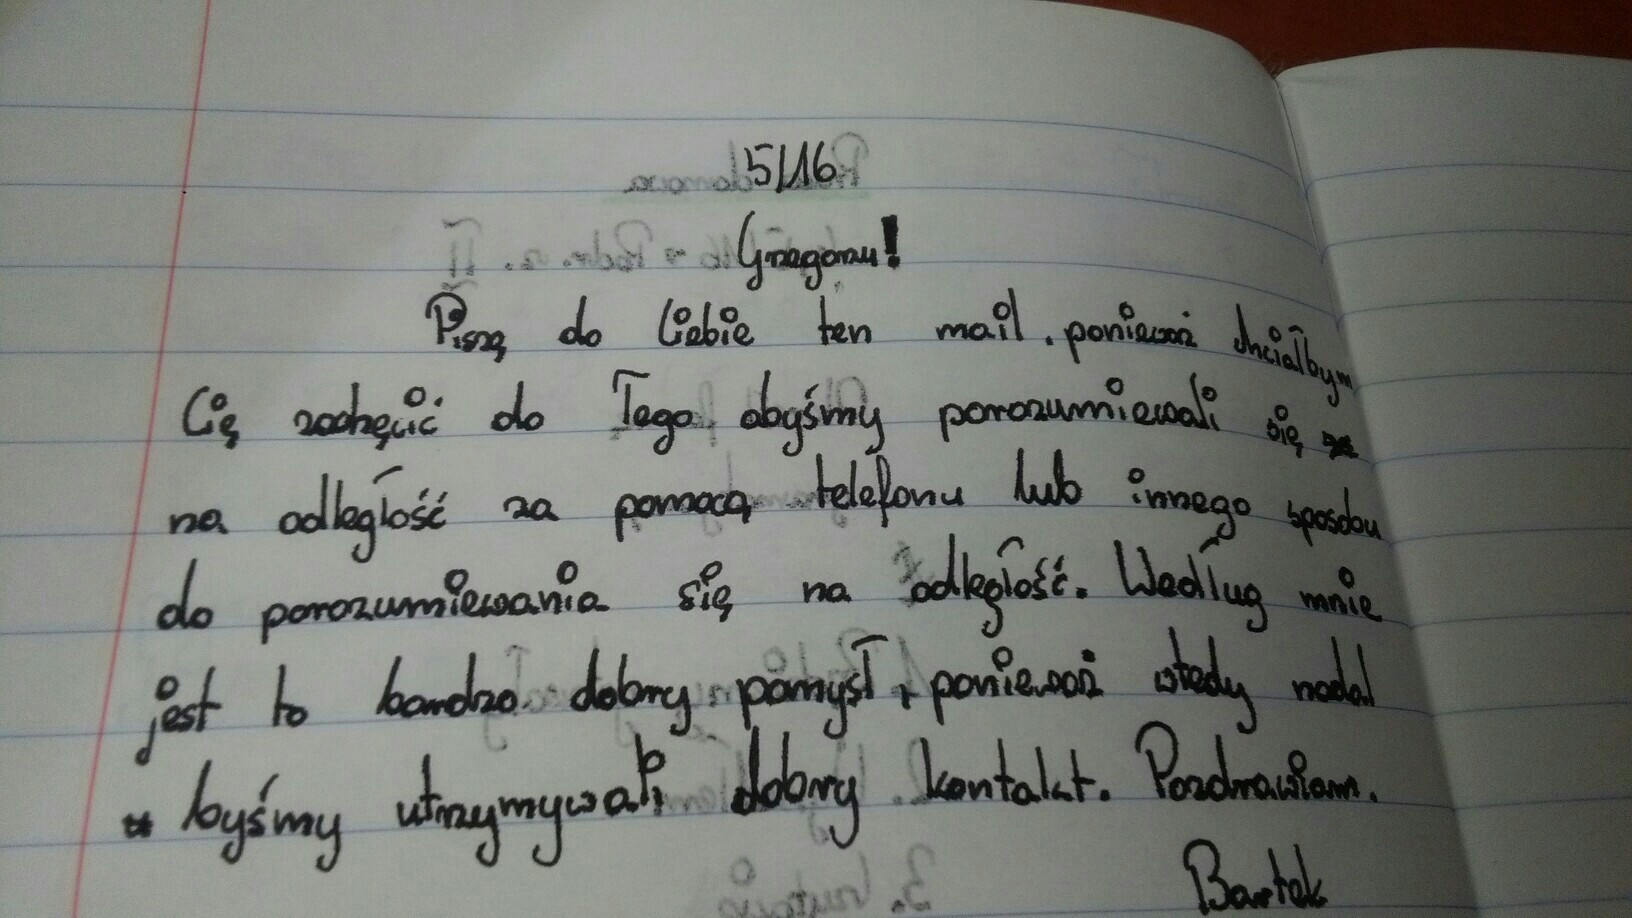 5/16
Grzegorzu!
Piszę do Ciebie ten mail, ponieważ chciałbym
Cię zachęcić do Tego abyśmy porozumiewali się
na odległość za pomocą telefonu lub innego sposobu
do porozumiewania się na odległość. Według mnie
jest to bardzo dobry pomysł, ponieważ wtedy nadal
byśmy utrzymywali dobry kontakt. Pozdrawiam.
Bartek